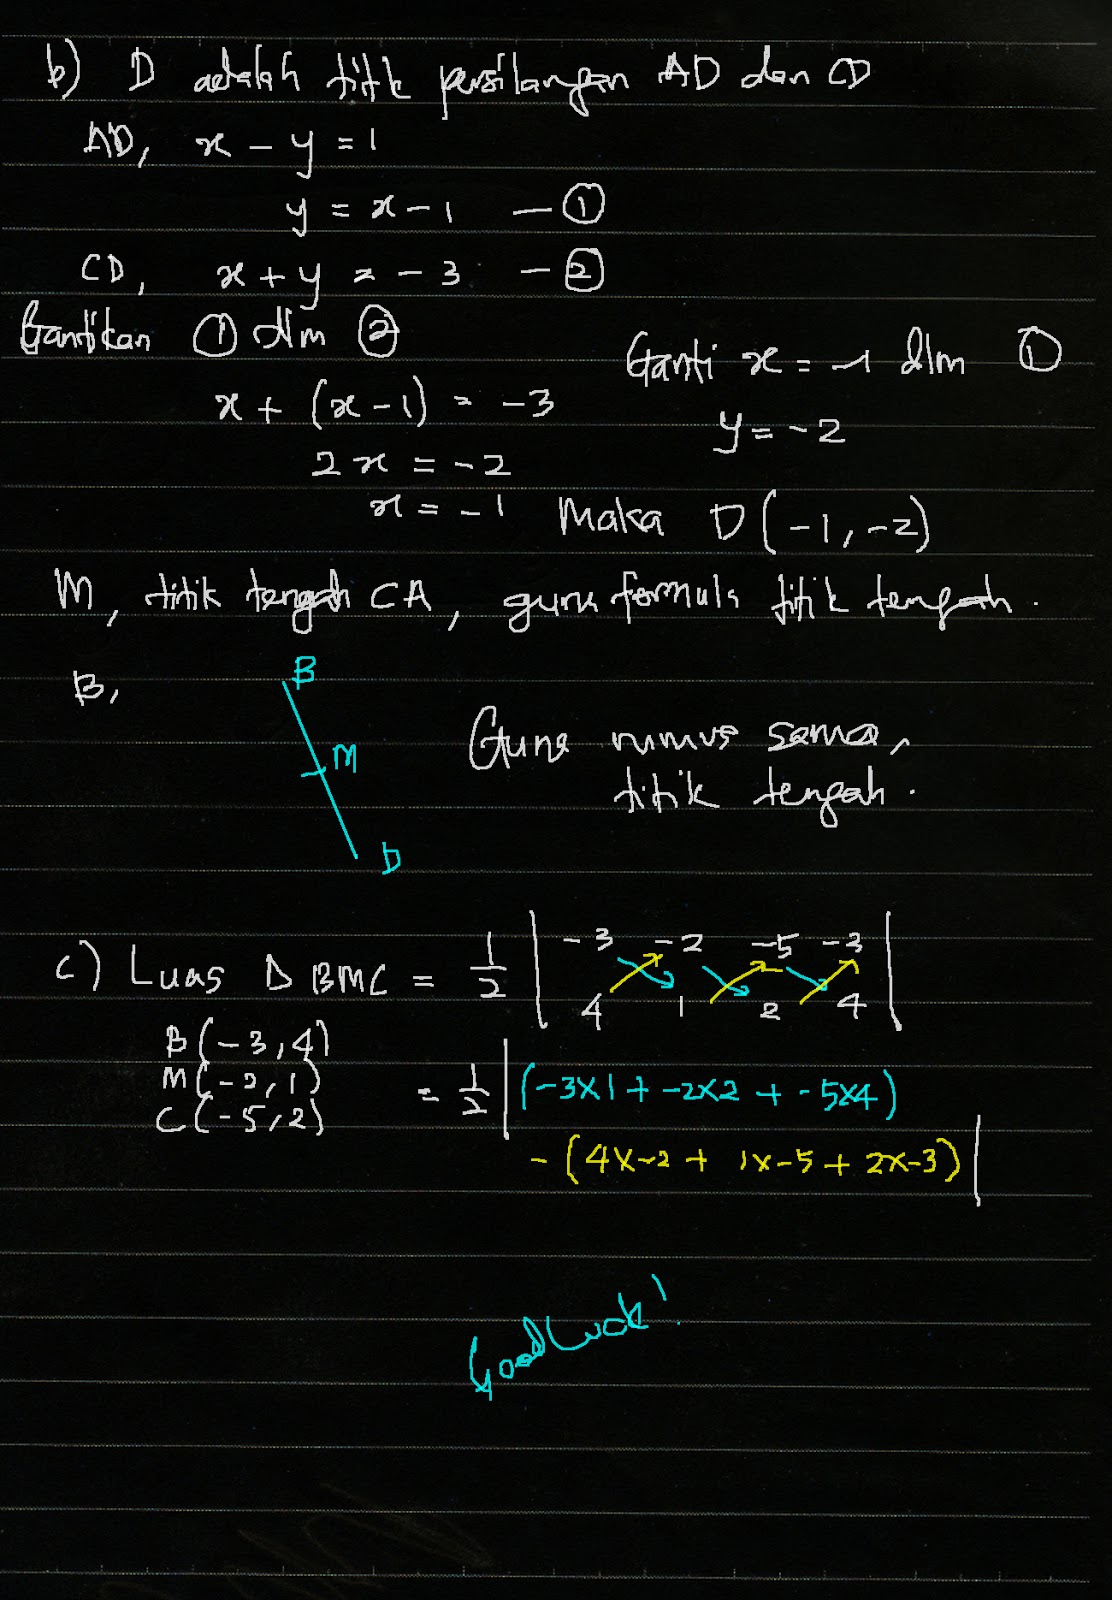 b) D adalah titik persilangan AD dan CD
AD, x - y = 1
y = x - 1 — ①
CD, x + y = -3 — ②
Gantikan ① dlm ②
x + (x - 1) = -3
2x = -2
x = -1
Ganti x = -1 dlm ①
y = -2
Maka D(-1, -2)
M, titik tengah CA, guna formula titik tengah.
B,
B
M
D
Guna rumus sama,
titik tengah.
c) Luas Δ BMC = 1/2 | -3 -2 -5 -3 |
4 1 2 4
B(-3, 4)
M(-2, 1)
C(-5, 2)
= 1/2 | (-3x1 + -2x2 + -5x4)
- (4x-2 + 1x-5 + 2x-3) |
Good Luck!